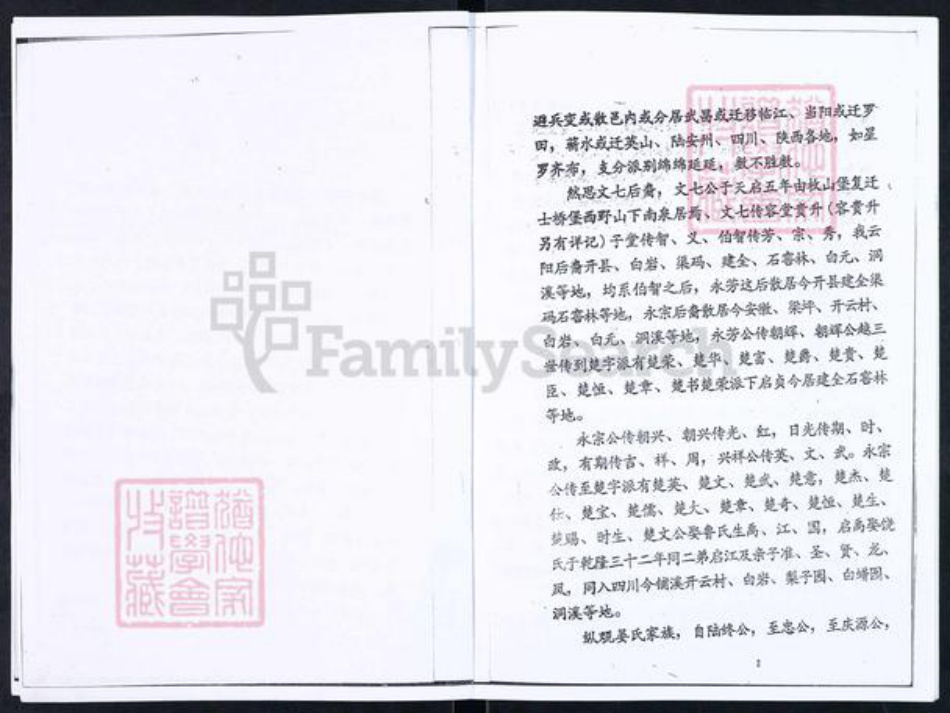 避兵变或散邑内或分居武昌或迁移临江、当阳或迁罗
田，蕲水或迁英山、陆安州、四川、陕西各地，如星
罗齐布，支分派别绵绵延延，数不胜数。
然思文七后裔，文七公于天启五年由枚山堡复迁
士桥堡西野山下南泉居焉、文七传容堂贵升（容贵升
另有详记）子堂传智、义、伯智传芳、宗、秀，我云
阳后裔开县、白岩、渠码、建全、石窖林、白元、洞
溪等地，均系伯智之后，永芳这后散居今开县建全渠
码石窖林等地，永宗后裔散居今安徽、梁坪、开云村、
白岩、白元、洞溪等地，永芳公传朝辉、朝辉公越三
世传到楚字派有楚荣、楚华、楚富、楚爵、楚贵、楚
臣、楚恒、楚章、楚书楚荣派下启贞今居建全石窖林
等地。
永宗公传朝兴、朝兴传光、红，日光传期、时、
政，有期传言、祥、周，兴祥公传英、文、武。永宗
公传至楚字派有楚英、楚文、楚武、楚意，楚杰、楚
仕、楚宝、楚儒、楚大、楚章、楚奇、楚恒、楚生、
楚赐、时生、楚文公娶鲁氏生禹、江、国，启禹娶饶
氏于乾隆三十二年同二弟启江及亲子准、圣、贤、龙、
凤，同入四川今铺溪开云村、白岩、梨子园、白塔图、
洞溪等地。
纵观晏氏家族，自陆终公，至忠公，至庆源公，
2
FamilySearch
猶他家
譜學會
收藏